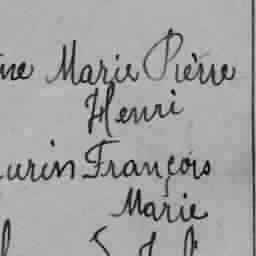 ne Marie Pierre
Henri
urin François
Marie